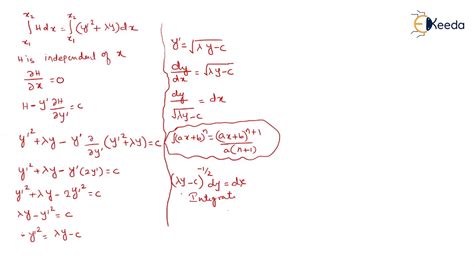 ∫_{x₁}^{x₂} H dx = ∫_{x₁}^{x₂} (y'² + λy) dx
H is independent of x
∂H/∂x = 0
H - y' ∂H/∂y' = c
y'² + λy - y' ∂/∂y' (y'² + λy) = c
y'² + λy - y'(2y') = c
y'² + λy - 2y'² = c
λy - y'² = c
- y'² = λy - c
y' = √(λy - c)
dy/dx = √(λy - c)
dy/√(λy - c) = dx
∫(ax+b)ⁿ = (ax+b)ⁿ⁺¹/a(n+1)
(λy - c)^{-1/2} dy = dx
Integrat
Ekeeda